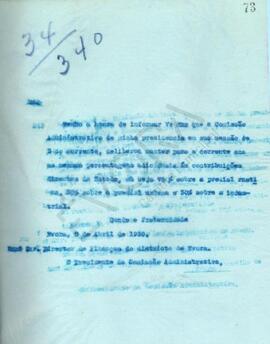 73
34/340
Tenho a honra de informar que a Comissão
Administrativa da minha presidencia em sua sessão de
do corrente, deliberou manter para o corrente ano
as mesmas percentagens adicionais ás contribuições
directas do Estado, ou seja sobre a predial rusti
ca, sobre a predial urbana e sobre a indus
trial.
Saúde e Fraternidade
Evora, 9 de Abril de 1930.
Snr. Director de Finanças do districto de Evora.
O Presidente da Comissão Administrativa,